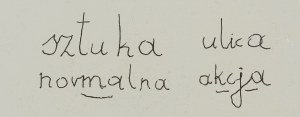 sztuka ulica
normalna akcja